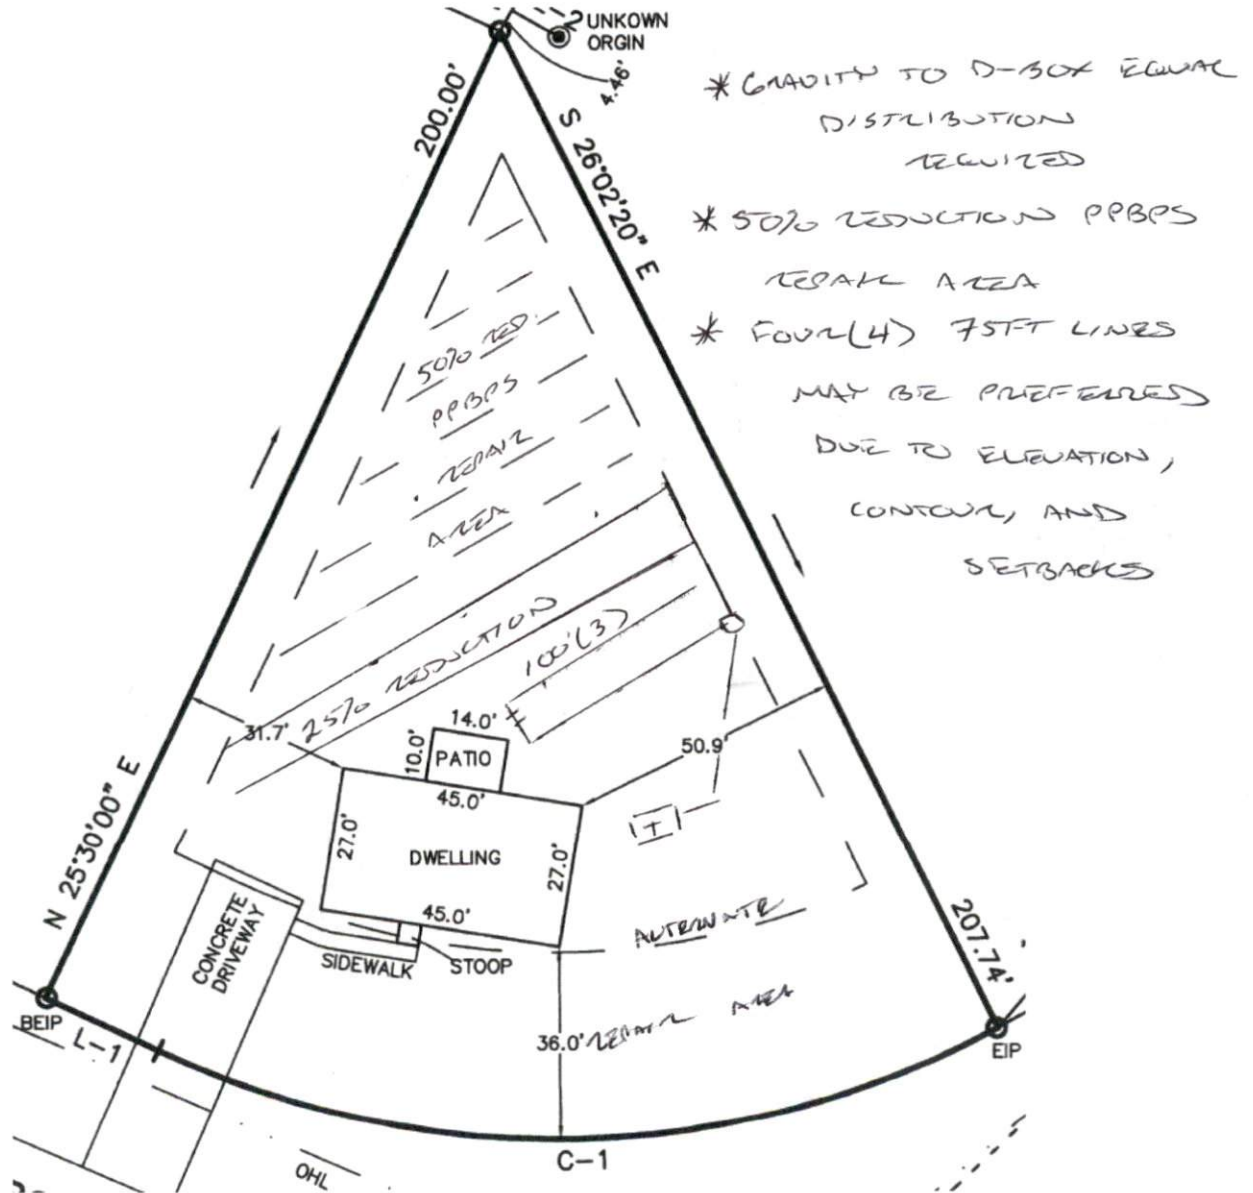 UNKOWN
ORGIN
4.46'
200.00'
S 26°02'20" E
* GRAVITY TO D-BOX EQUAL
DISTRIBUTION
REQUIRED
* 50% REDUCTION PPBPS
REPAIR AREA
* FOUR(4) 75FT LINES
MAY BE PREFERRED
DUE TO ELEVATION,
CONTOUR, AND
SETBACKS
50% RED.
PPBPS
REPAIR
AREA
25% REDUCTION
100'(3)
31.7'
14.0'
10.0'
PATIO
50.9'
45.0'
27.0'
DWELLING
27.0'
T
45.0'
N 25°30'00" E
CONCRETE
DRIVEWAY
SIDEWALK
STOOP
ALTERNATE
REPAIR AREA
207.74'
36.0'
BEIP
L-1
EIP
C-1
OHL